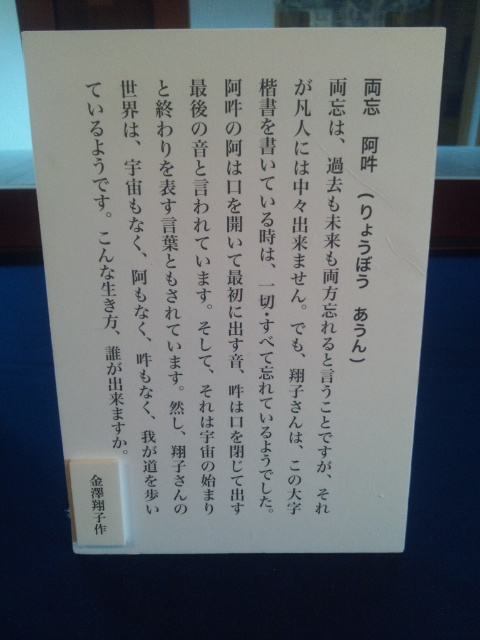 両忘　阿吽　(りょうぼう　あうん)
両忘は、過去も未来も両方忘れると言うことですが、それ
が凡人には中々出来ません。でも、翔子さんは、この大字
楷書を書いている時は、一切・すべて忘れているようでした。
阿吽の阿は口を開いて最初に出す音、吽は口を閉じて出す
最後の音と言われています。そして、それは宇宙の始まり
と終わりを表す言葉ともされています。然し、翔子さんの
世界は、宇宙もなく、阿もなく、吽もなく、我が道を歩い
ているようです。こんな生き方、誰が出来ますか。
金澤翔子作